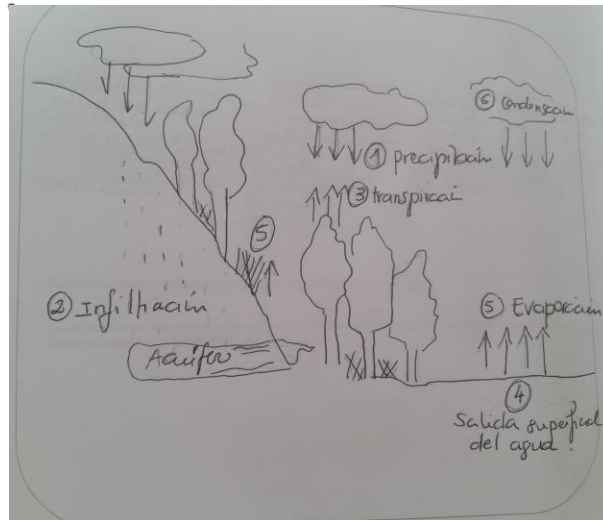 ⑥ Condensación
① precipitación
③ transpiración
⑤
② Infiltración
⑤ Evaporación
Acuífero
④
Salida superficial
del agua.